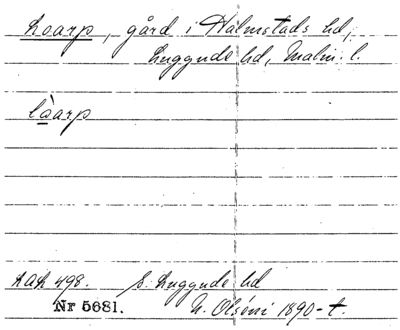 Loarp, gård i Halmstads hd,
Luggude hd, Malm. l.
lòarp
LAL 498. S. Luggude hd
Nr 5681. N. Olséni 1890-t.